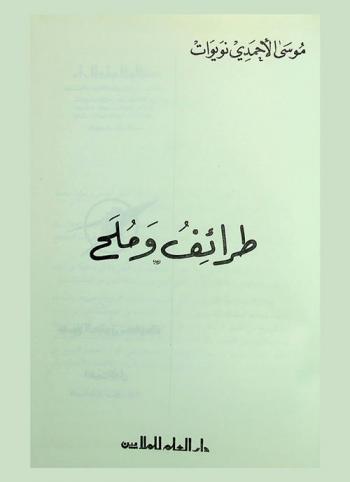 موسى الأحمدي نويوات
طرائفُ وَمُلَح
دار العلم للملايين